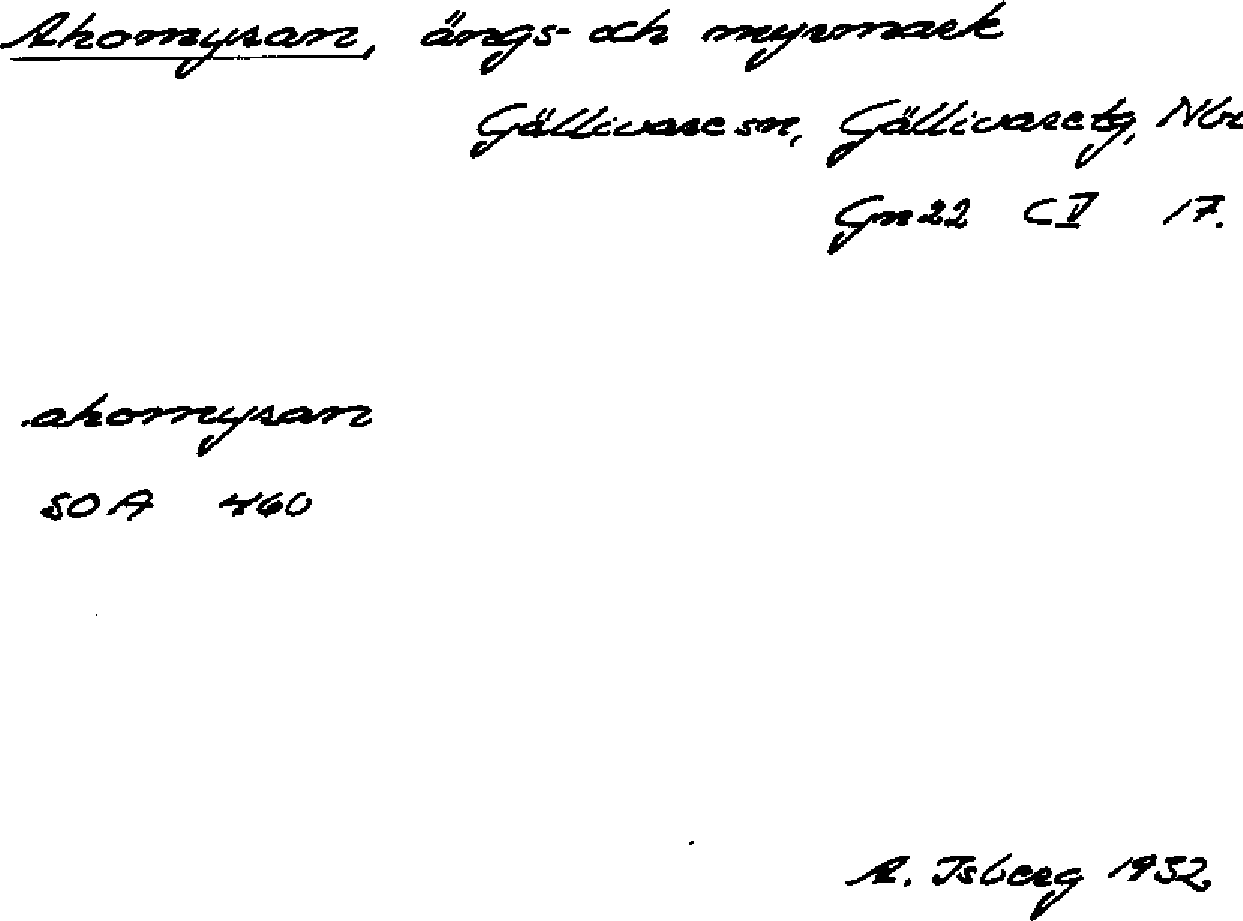 Ahomyran, ängs- och myrmark
Gällivare sn, Gällivare tg, Nbt
Gn 22 C V 17.
ahomyran
SOA 460
A. Isberg 1932